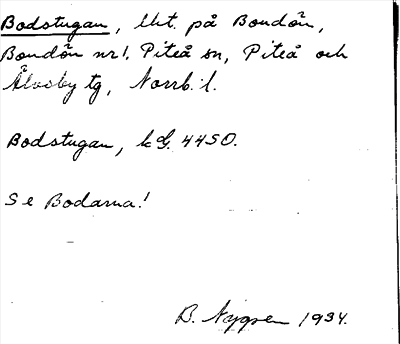 Bodstugan, lht. på Bondön,
Bondön nr 1. Piteå sn, Piteå och
Älvsby tg, Norrb. l.
Bodstugan, LG. 4450.
Se Bodarna!
B. Nygren 1934.